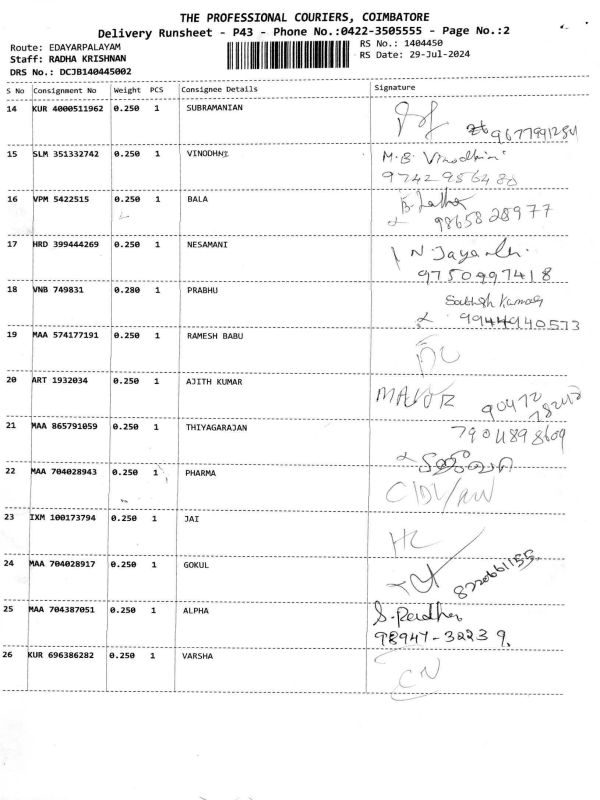 THE PROFESSIONAL COURIERS, COIMBATORE
Delivery Runsheet - P43 - Phone No.:0422-3505555 - Page No.:2
Route: EDAYARPALAYAM
RS No.: 1404450
Staff: RADHA KRISHNAN
RS Date: 29-Jul-2024
DRS No.: DCJB140445002
S No Consignment No Weight PCS Consignee Details Signature
14 KUR 4000511962 0.250 1 SUBRAMANIAN
9677991254
15 SLM 351332742 0.250 1 VINODHNI M.B. Vinodhini
97429 56480
16 VPM 5422515 0.250 1 BALA
98658 28977
17 HRD 399444269 0.250 1 NESAMANI N. Jayanthi
9750997418
18 VNB 749831 0.280 1 PRABHU Sathish Kumar
9944940573
19 MAA 574177191 0.250 1 RAMESH BABU
20 ART 1932034 0.250 1 AJITH KUMAR
90472
21 MAA 865791059 0.250 1 THIYAGARAJAN 7904898609
22 MAA 704028943 0.250 1 PHARMA
23 IXM 100173794 0.250 1 JAI
24 MAA 704028917 0.250 1 GOKUL
8220661155
25 MAA 704387051 0.250 1 ALPHA S. Radha
98947-32239.
26 KUR 696386282 0.250 1 VARSHA
CN